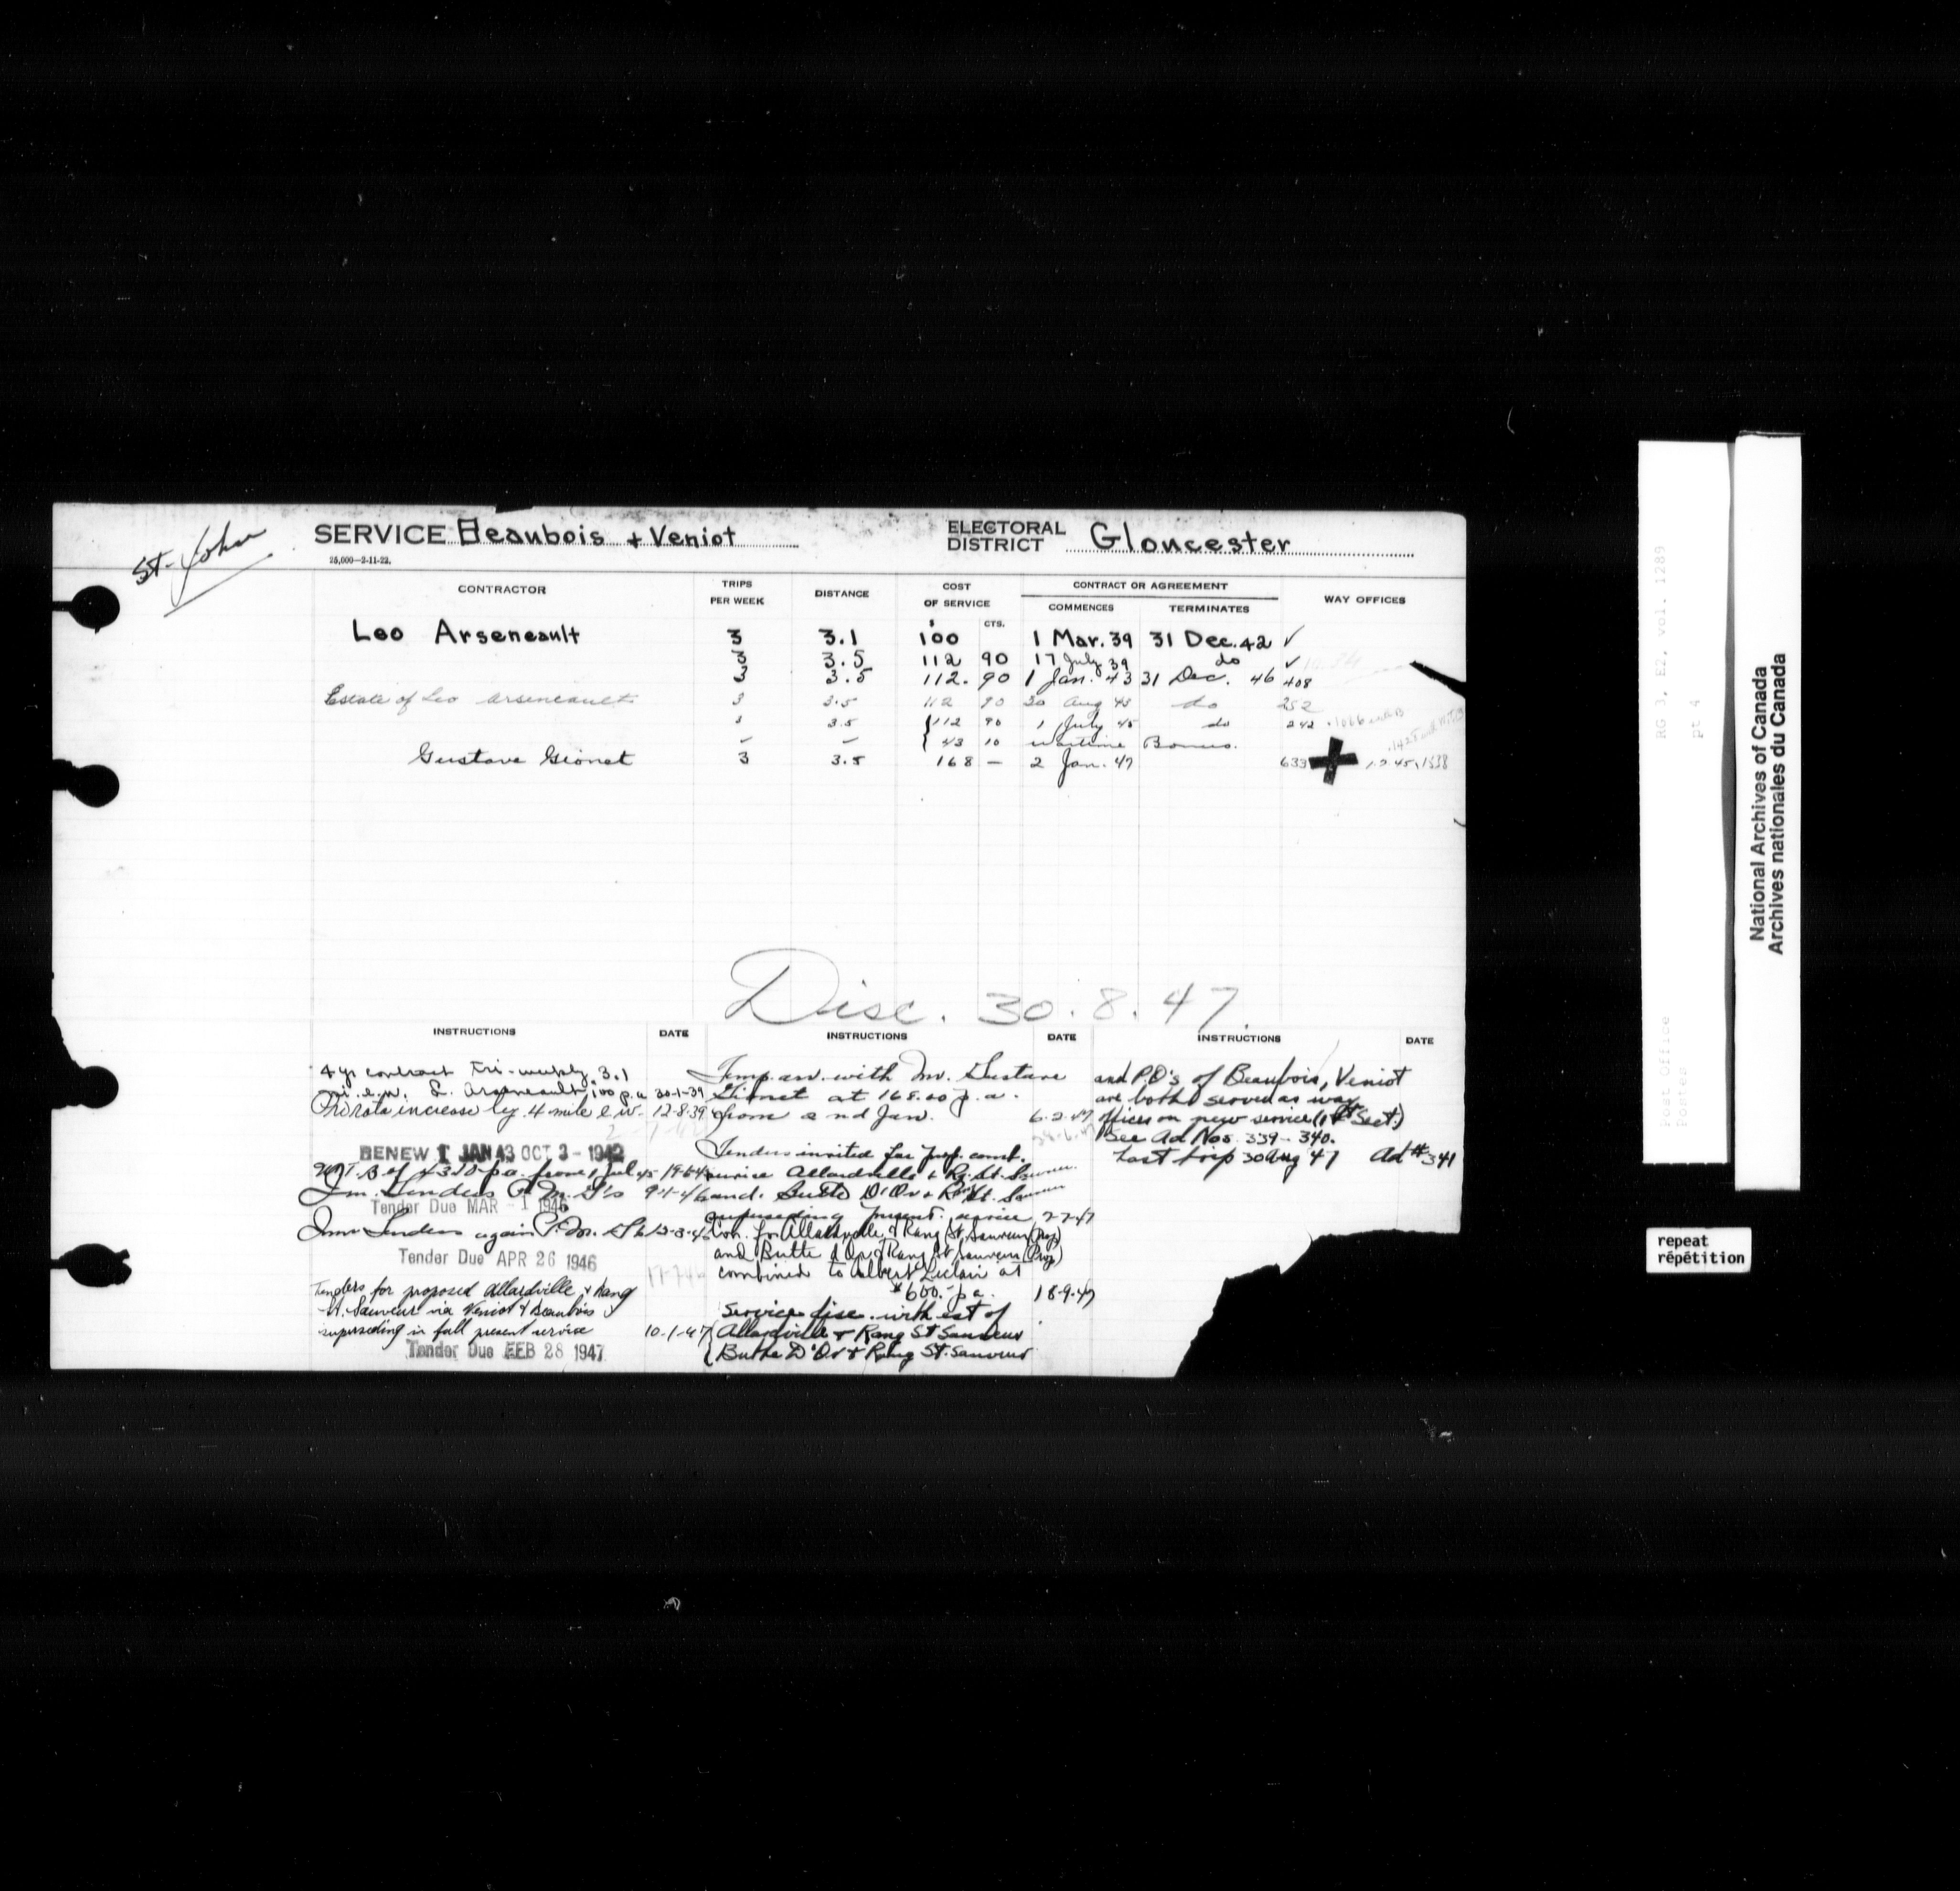 St-John
SERVICE Beaubois + Veniot
ELECTORAL DISTRICT Gloucester
25,000—2-11-22.
CONTRACTOR TRIPS PER WEEK DISTANCE COST OF SERVICE CONTRACT OR AGREEMENT WAY OFFICES
$ CTS. COMMENCES TERMINATES
Leo Arseneault 3 3.1 100 1 Mar. 39 31 Dec. 42 ✓
3 3.5 112 90 17 July 39 do ✓
3 3.5 112. 90 1 Jan. 43 31 Dec. 46 408
Estate of Leo Arseneault 3 3.5 112 90 20 Aug 43 do 252
3 3.5 {112 90 1 July 45 do 242
— — {43 10 Wartime Bonus.
Gustave Gionet 3 3.5 168 — 2 Jan. 47 633
Disc. 30.8.47.
INSTRUCTIONS DATE
4 yr contract tri-weekly, 3.1
L. Arseneault, 100 p.a 30-1-39
Pro rata increase by .4 mile e.w. 12-8-39
RENEW 1 JAN 43 OCT 3 - 1942
from 1 Jul 45
Tenders P.M. G's
Tender Due MAR - 1 1946
Tenders again
Tender Due APR 26 1946
Tenders for proposed Allardville & Rang
St. Sauveur via Veniot & Beaubois
superseding in full present service 10-1-47
Tender Due FEB 28 1947
INSTRUCTIONS DATE
Temp. arr. with Mr. Gustave
Gionet at 168.00 p.a.
from 2nd Jan. 6-2-47
Tenders invited for prop. comb.
service Allardville & Rg. St. Sauveur
and Butte D'Or & Rang St. Sauveur
superseding present service 2-7-47
Con. for Allardville & Rang St. Sauveur (Prop)
and Butte d'Or & Rang St. Sauveur (Prop)
combined to Albert Leclair at
$600. p.a. 18-9-47
Service disc. with est of
{Allardville & Rang St Sauveur
{Butte D'Or & Rang St. Sauveur
INSTRUCTIONS DATE
and P.O's of Beaubois, Veniot
are both served as way
offices on new service (1st Sect.)
See Ad Nos. 339-340.
Last trip 30 Aug 47 Ad # 341
RG 3, E2, vol. 1289
pt 4
Post Office
Postes
National Archives of Canada
Archives nationales du Canada
repeat
répétition